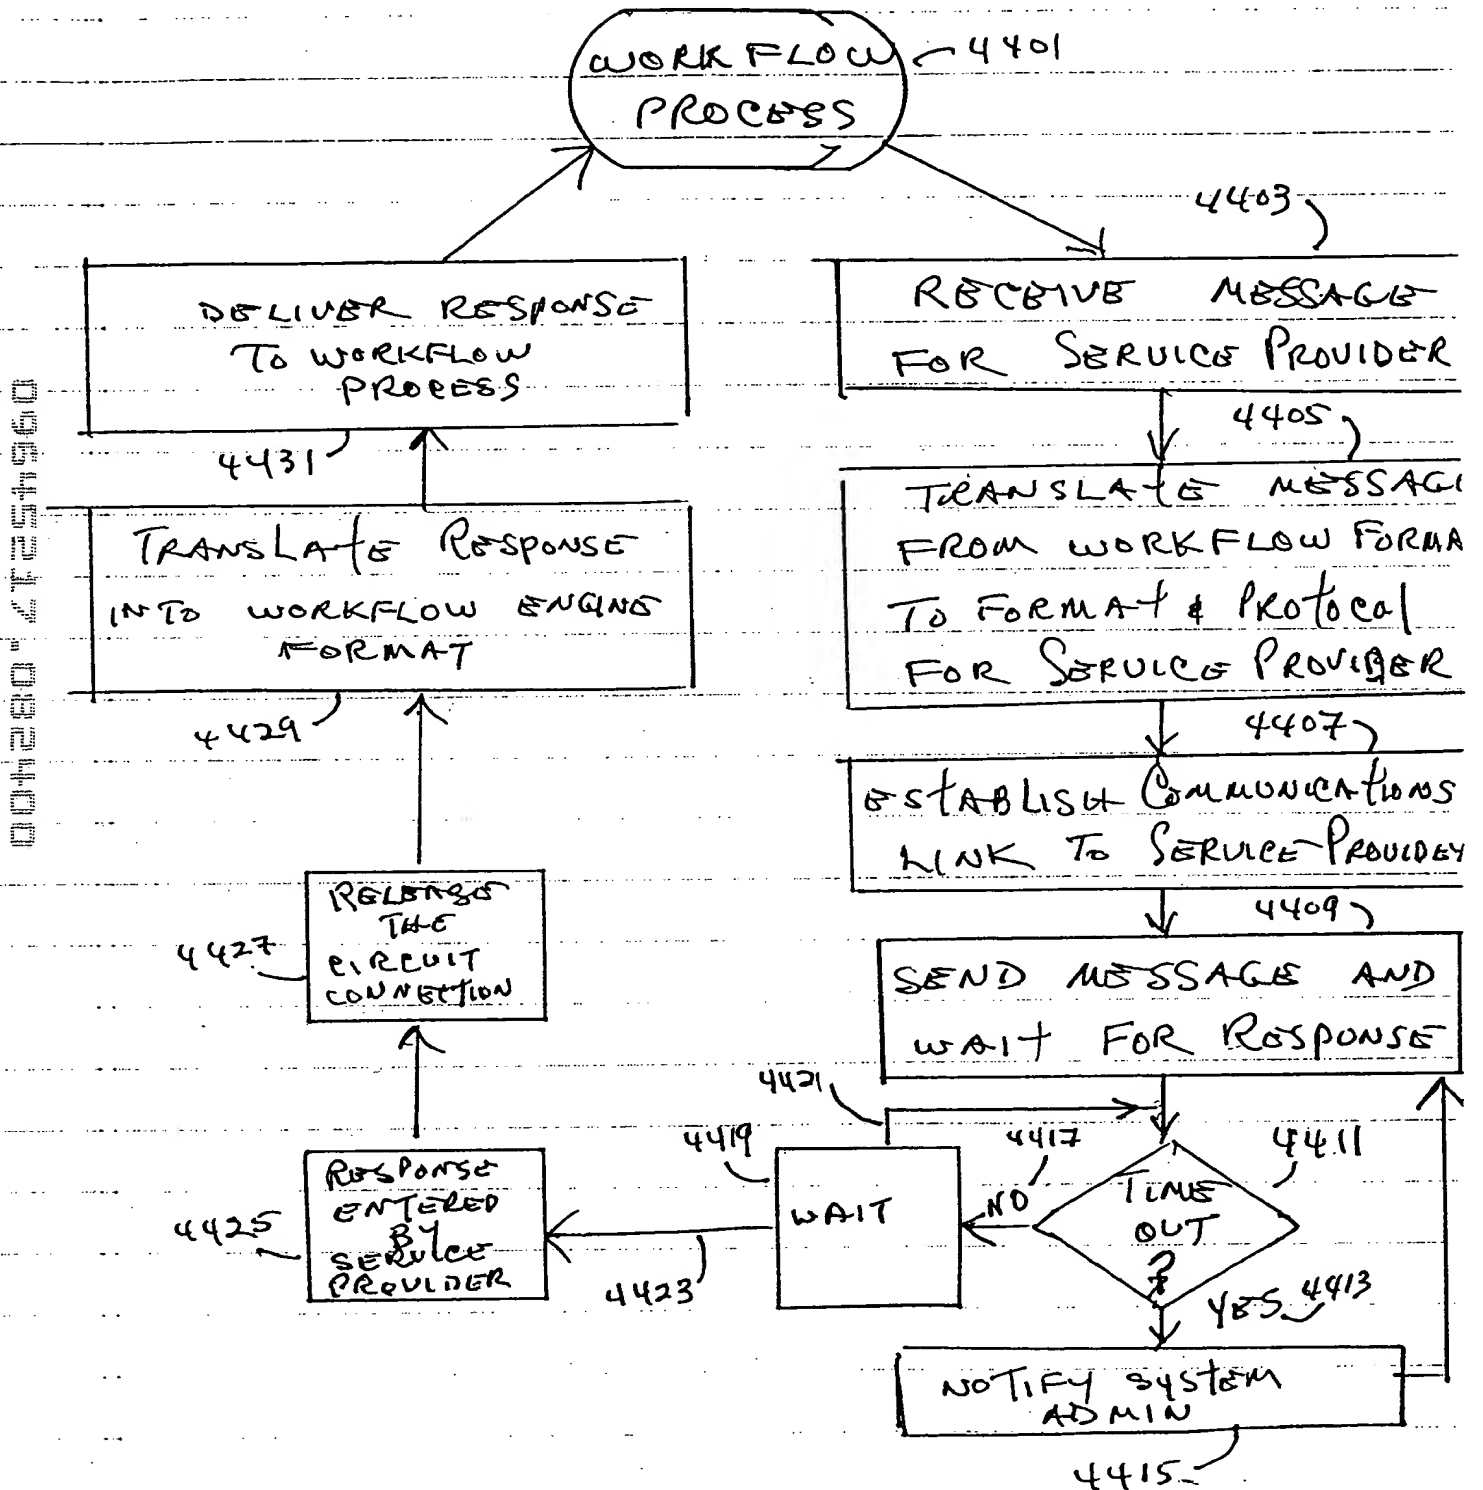 WORKFLOW
PROCESS
4401
4403
RECEIVE MESSAGE
FOR SERVICE PROVIDER
4405
TRANSLATE MESSAG
FROM WORKFLOW FORMA
TO FORMAT & PROTOCAL
FOR SERVICE PROVIDER
4407
ESTABLISH COMMUNICATIONS
LINK TO SERVICE PROVIDER
4409
SEND MESSAGE AND
WAIT FOR RESPONSE
4411
TIME
OUT
?
YES 4413
NOTIFY SYSTEM
ADMIN
4415
NO
4417
4419
WAIT
4421
4423
RESPONSE
ENTERED
BY
SERVICE
PROVIDER
4425
RELEASE
THE
CIRCUIT
CONNECTION
4427
TRANSLATE RESPONSE
INTO WORKFLOW ENGINE
FORMAT
4429
DELIVER RESPONSE
TO WORKFLOW
PROCESS
4431
09645217.082400